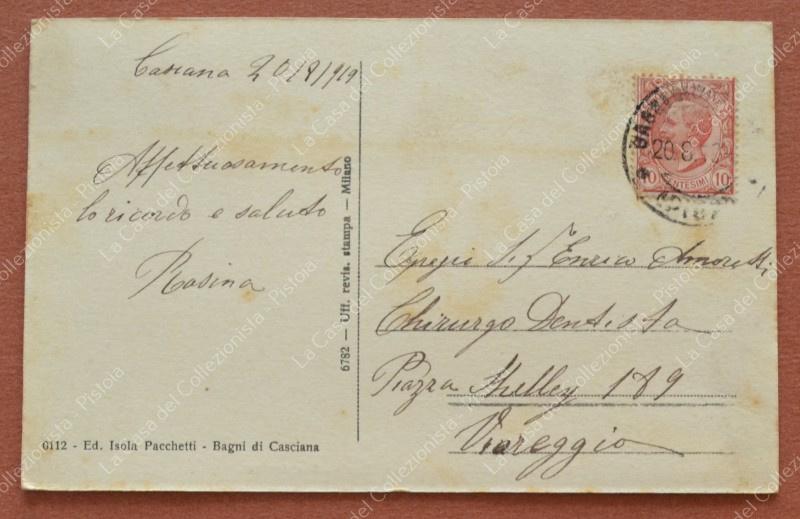 Casciana 20/8/919
Affettuosamente
lo ricordo e saluto
Rosina
6112 - Ed. Isola Pacchetti - Bagni di Casciana
6782 — Uff. revis. stampa — Milano
20.8
10 CENTESIMI 10
Egregio Sig Enrico Amoretti
Chirurgo Dentista
Piazza Shelley 189
Viareggio
La Casa del Collezionista - Pistoia